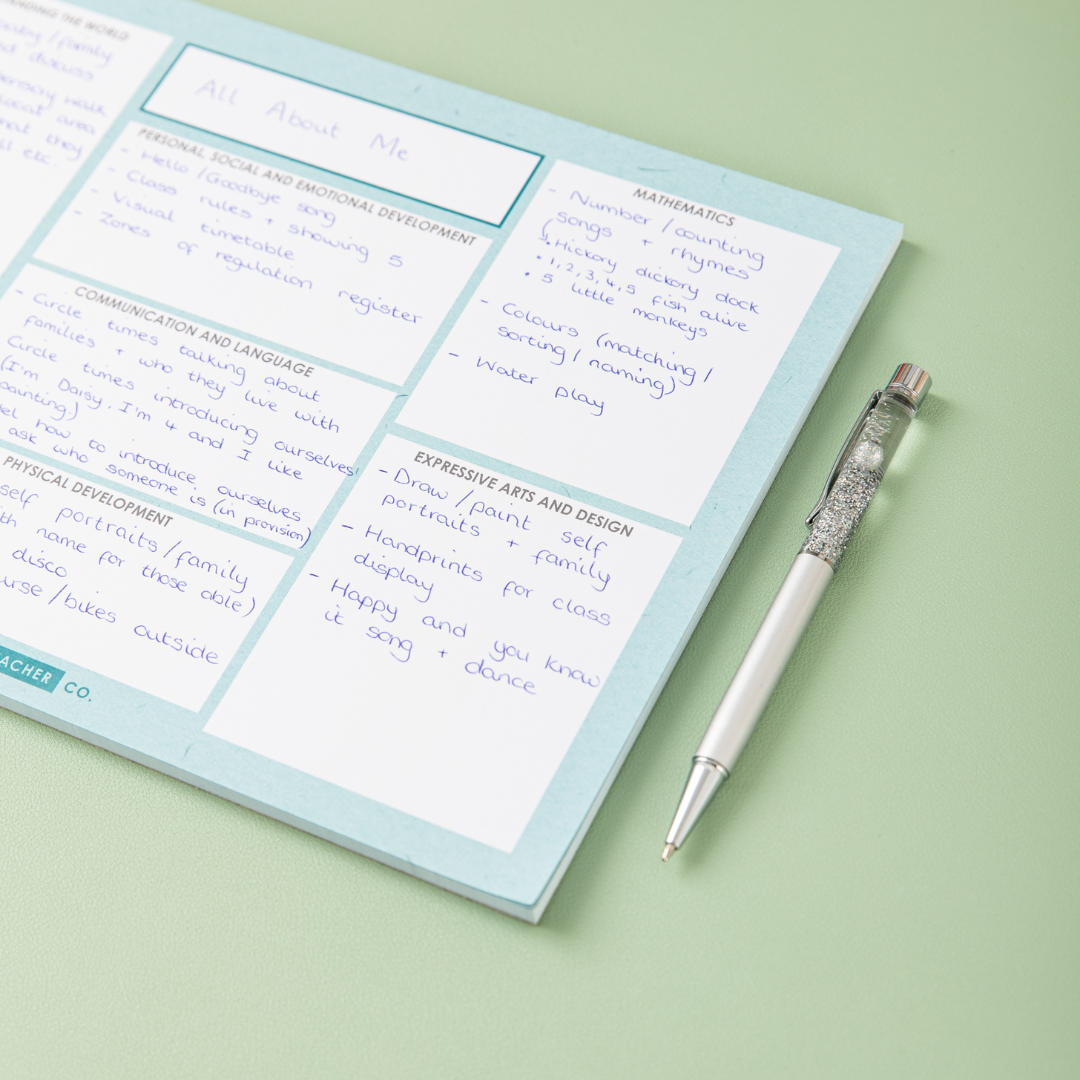 THE WORLD
/family
discuss
walk
local area
they
etc.
All About Me
PERSONAL, SOCIAL AND EMOTIONAL DEVELOPMENT
- Hello / Goodbye song
- Class rules + showing 5
- Visual timetable
- Zones of regulation register
COMMUNICATION AND LANGUAGE
- Circle times talking about
families + who they live with
Circle times introducing ourselves
(I'm Daisy, I'm 4 and I like
painting.)
how to introduce ourselves
ask who someone is (in provision)
PHYSICAL DEVELOPMENT
self portraits / family
name for those able)
disco
/bikes outside
CO.
MATHEMATICS
- Number / counting
songs + rhymes
(• Hickory dickory dock
• 1, 2, 3, 4, 5 fish alive
• 5 little monkeys
- Colours (matching /
sorting / naming)
- Water play
EXPRESSIVE ARTS AND DESIGN
- Draw / paint self
portraits + family
- Handprints for class
display
- Happy and you know
it song + dance